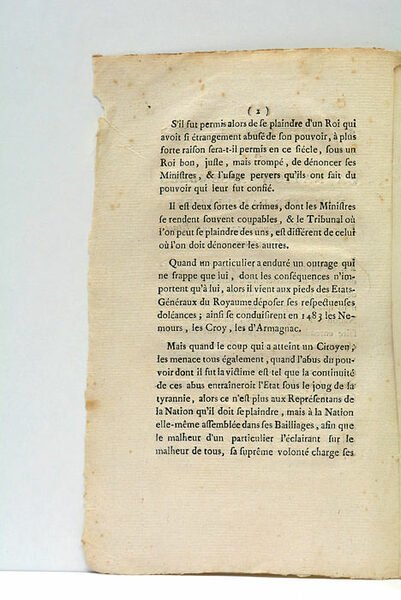 ( 2 )
S'il fut permis alors de se plaindre d'un Roi qui
avoit si étrangement abusé de son pouvoir, à plus
forte raison sera-t-il permis en ce siécle, sous un
Roi bon, juste, mais trompé, de dénoncer ses
Ministres, & l'usage pervers qu'ils ont fait du
pouvoir qui leur fut confié.
Il est deux sortes de crimes, dont les Ministres
se rendent souvent coupables, & le Tribunal où
l'on peut se plaindre des uns, est différent de celui
où l'on doit dénoncer les autres.
Quand un particulier a enduré un outrage qui
ne frappe que lui, dont les conséquences n'im-
portent qu'à lui, alors il vient aux pieds des Etats-
Généraux du Royaume déposer ses respectueuses
doléances; ainsi se conduisirent en 1483 les Ne-
mours, les Croy, les d'Armagnac.
Mais quand le coup qui a atteint un Citoyen,
les menace tous également, quand l'abus du pou-
voir dont il fut la victime est tel que la continuité
de ces abus entraîneroit l'Etat sous le joug de la
tyrannie, alors ce n'est plus aux Représentans de
la Nation qu'il doit se plaindre, mais à la Nation
elle-même assemblée dans ses Bailliages, afin que
le malheur d'un particulier l'éclairant sur le
malheur de tous, sa suprême volonté charge ses